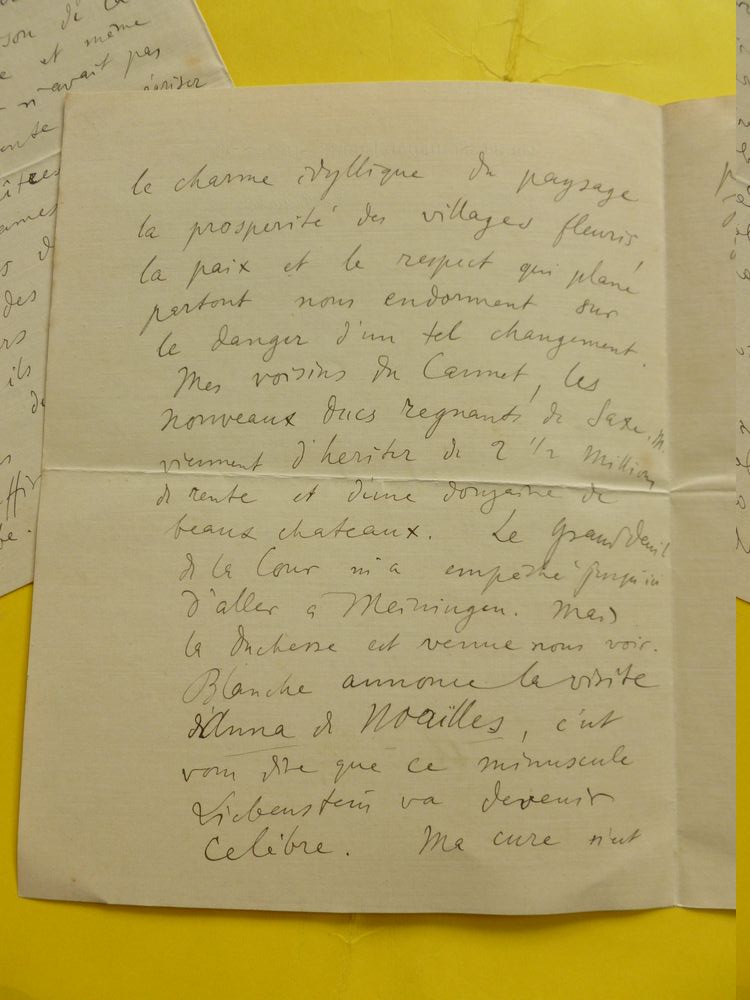 son de la
e et même
n'avait pas
le charme idyllique du paysage
la prosperité des villages fleuris
la paix et le respect qui plane
partout nous endorment sur
le danger d'un tel changement.
Mes voisins du Carmet, les
nouveaux ducs regnants de Saxe, M.
viennent d'heriter de 2 1/2 millions
de rente et d'une douzaine de
beaux chateaux. Le Grand deuil
de la Cour m'a empeché jusqu'ici
d'aller a Meiningen. Mais
la duchesse est venue nous voir.
Blanche annonce la visite
d'Anna de Noailles, c'est
vous dire que ce minuscule
Liebenstein va devenir
celèbre. Ma cure n'est